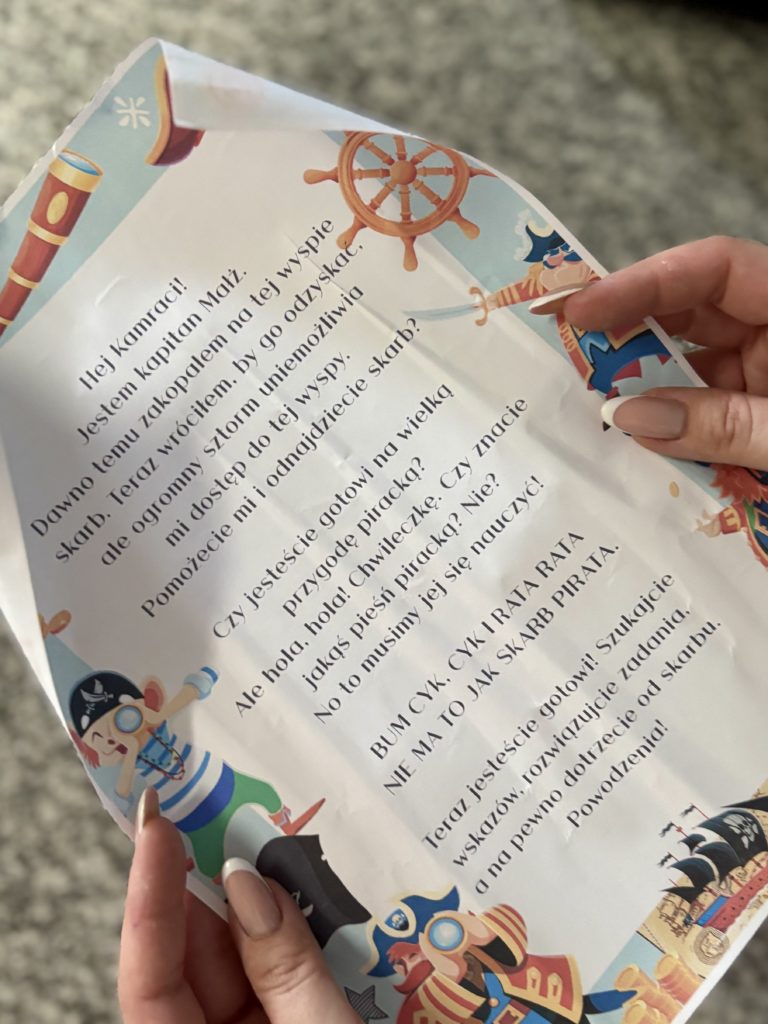 Hej Kamraci!
Jestem kapitan Małż.
Dawno temu zakopałem na tej wyspie
skarb. Teraz wróciłem, by go odzyskać,
ale ogromny sztorm uniemożliwia
mi dostęp do tej wyspy.
Pomożecie mi i odnajdziecie skarb?
Czy jesteście gotowi na wielką
przygodę piracką?
Ale hola, hola! Chwileczkę. Czy znacie
jakąś pieśń piracką? Nie?
No to musimy jej się nauczyć!
BUM CYK, CYK I RATA RATA
NIE MA TO JAK SKARB PIRATA.
Teraz jesteście gotowi! Szukajcie
wskazów, rozwiązujcie zadania,
a na pewno dotrzecie od skarbu.
Powodzenia!